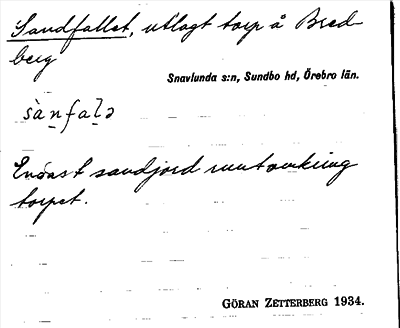 Sandfallet, utlagt torp å Bred-
berg
Snavlunda s:n, Sundbo hd, Örebro län.
sànfalə
Endast sandjord runtomkring
torpet.
GÖRAN ZETTERBERG 1934.